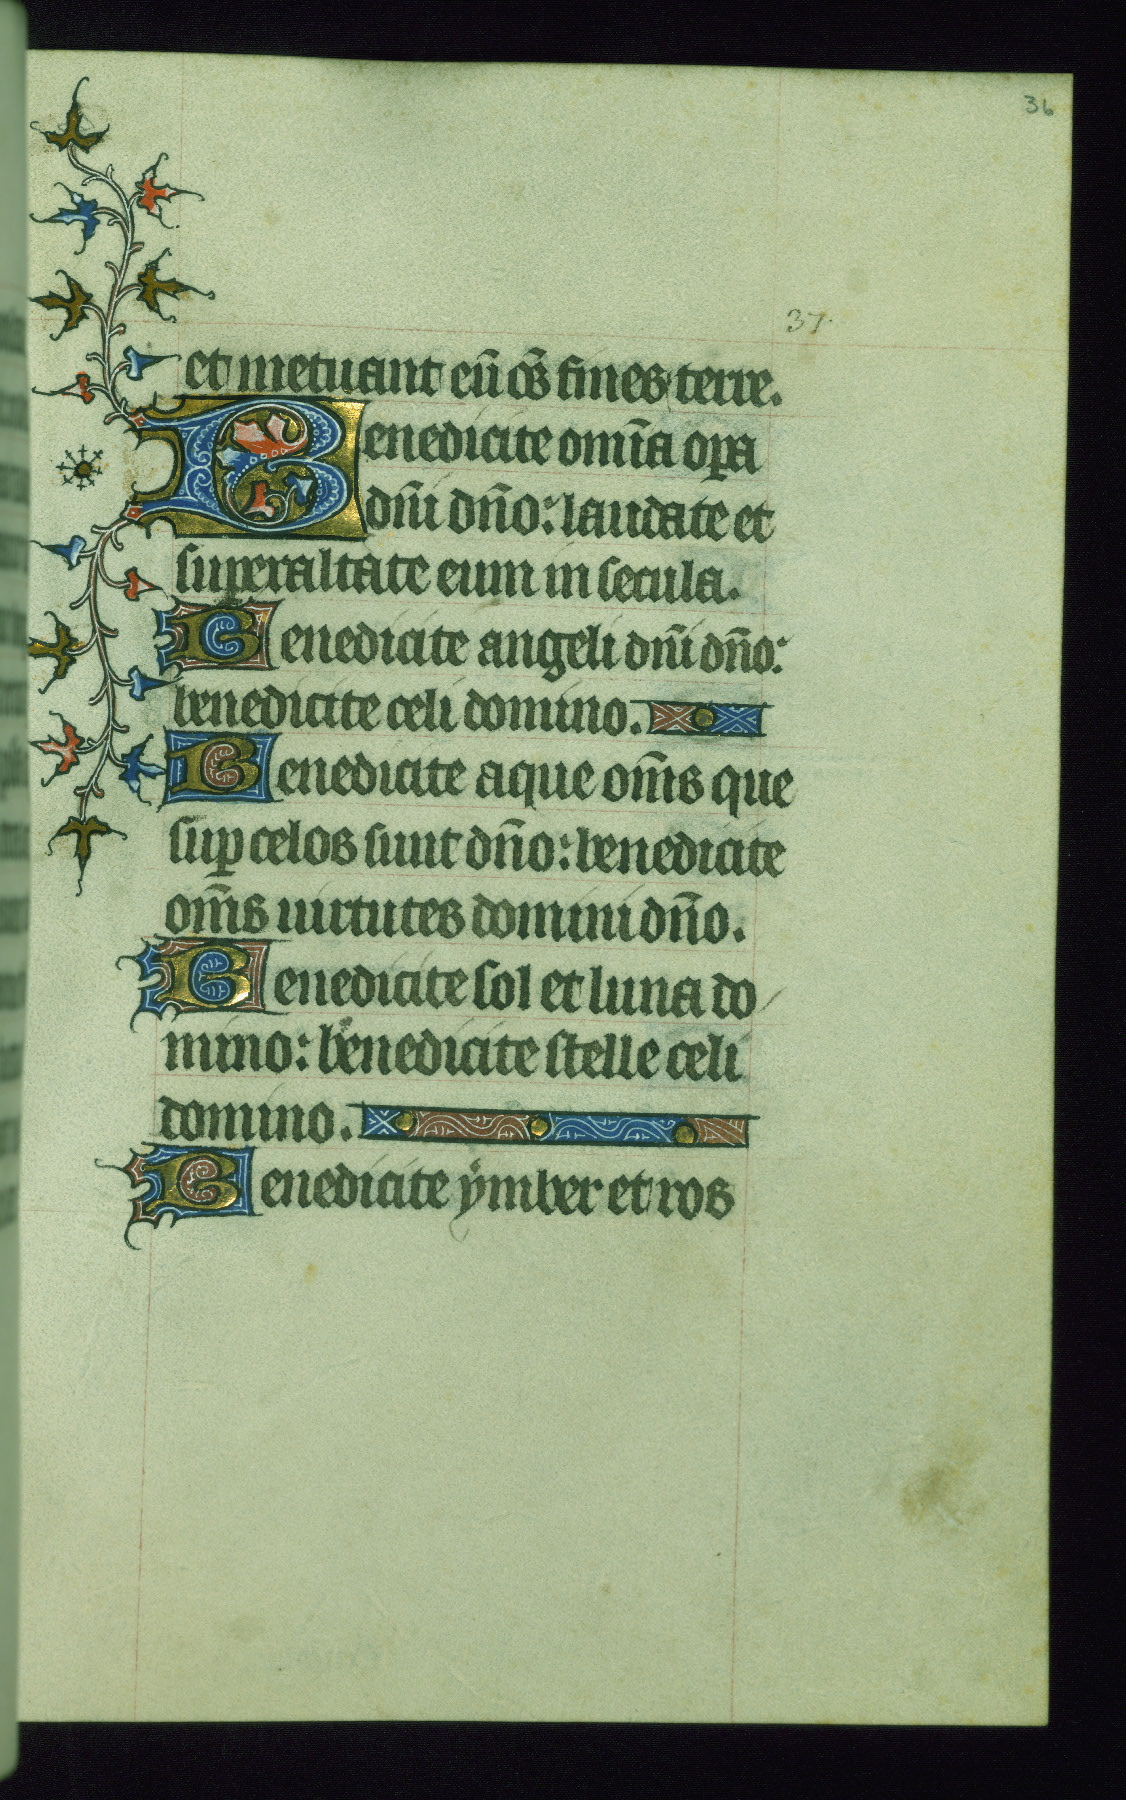 36
37.
et metuant eū om̄s fines terre.
Benedicite omīa oꝑa
dn̄i dn̄o: laudate et
superaltate eum in secula.
Benedicite angeli dn̄i dn̄o:
benedicite celi domino.
Benedicite aque om̄s que
suꝑ celos sunt dn̄o: benedicite
om̄s uirtutes domini dn̄o.
Benedicite sol et luna do/
mino: benedicite stelle celi
domino.
Benedicite ẏmber et ros